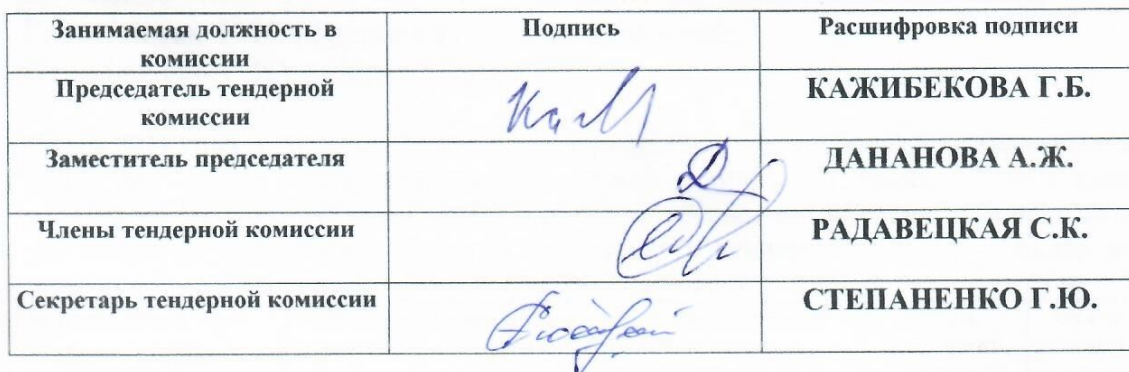 Занимаемая должность в
комиссии
Подпись
Расшифровка подписи
Председатель тендерной
комиссии
КАЖИБЕКОВА Г.Б.
Заместитель председателя
ДАНАНОВА А.Ж.
Члены тендерной комиссии
РАДАВЕЦКАЯ С.К.
Секретарь тендерной комиссии
СТЕПАНЕНКО Г.Ю.